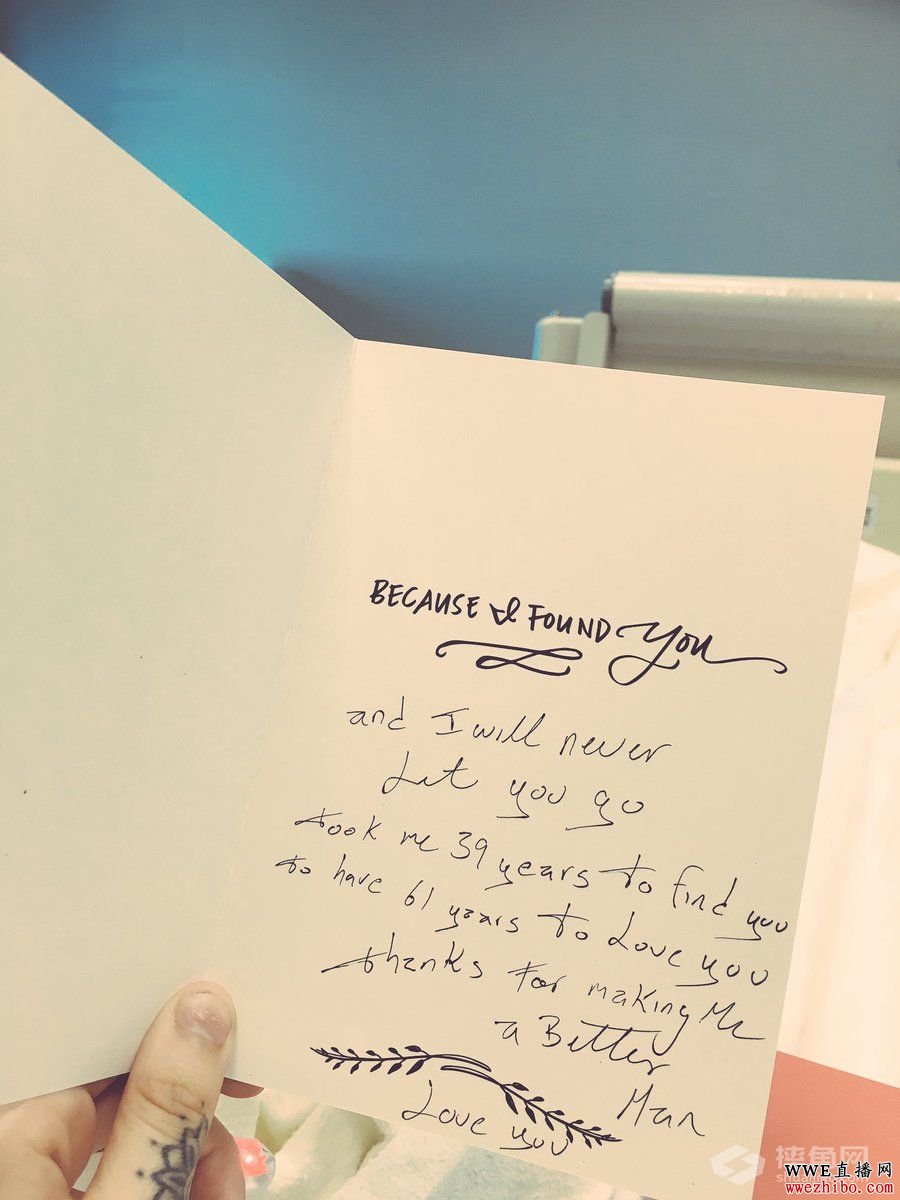 BECAUSE I FOUND You
and I will never
Let you go
took me 39 years to find you
to have 61 years to Love you
thanks for making Me
a Better
Man
Love you
摔角网
WWE直播网
wwezhibo.com